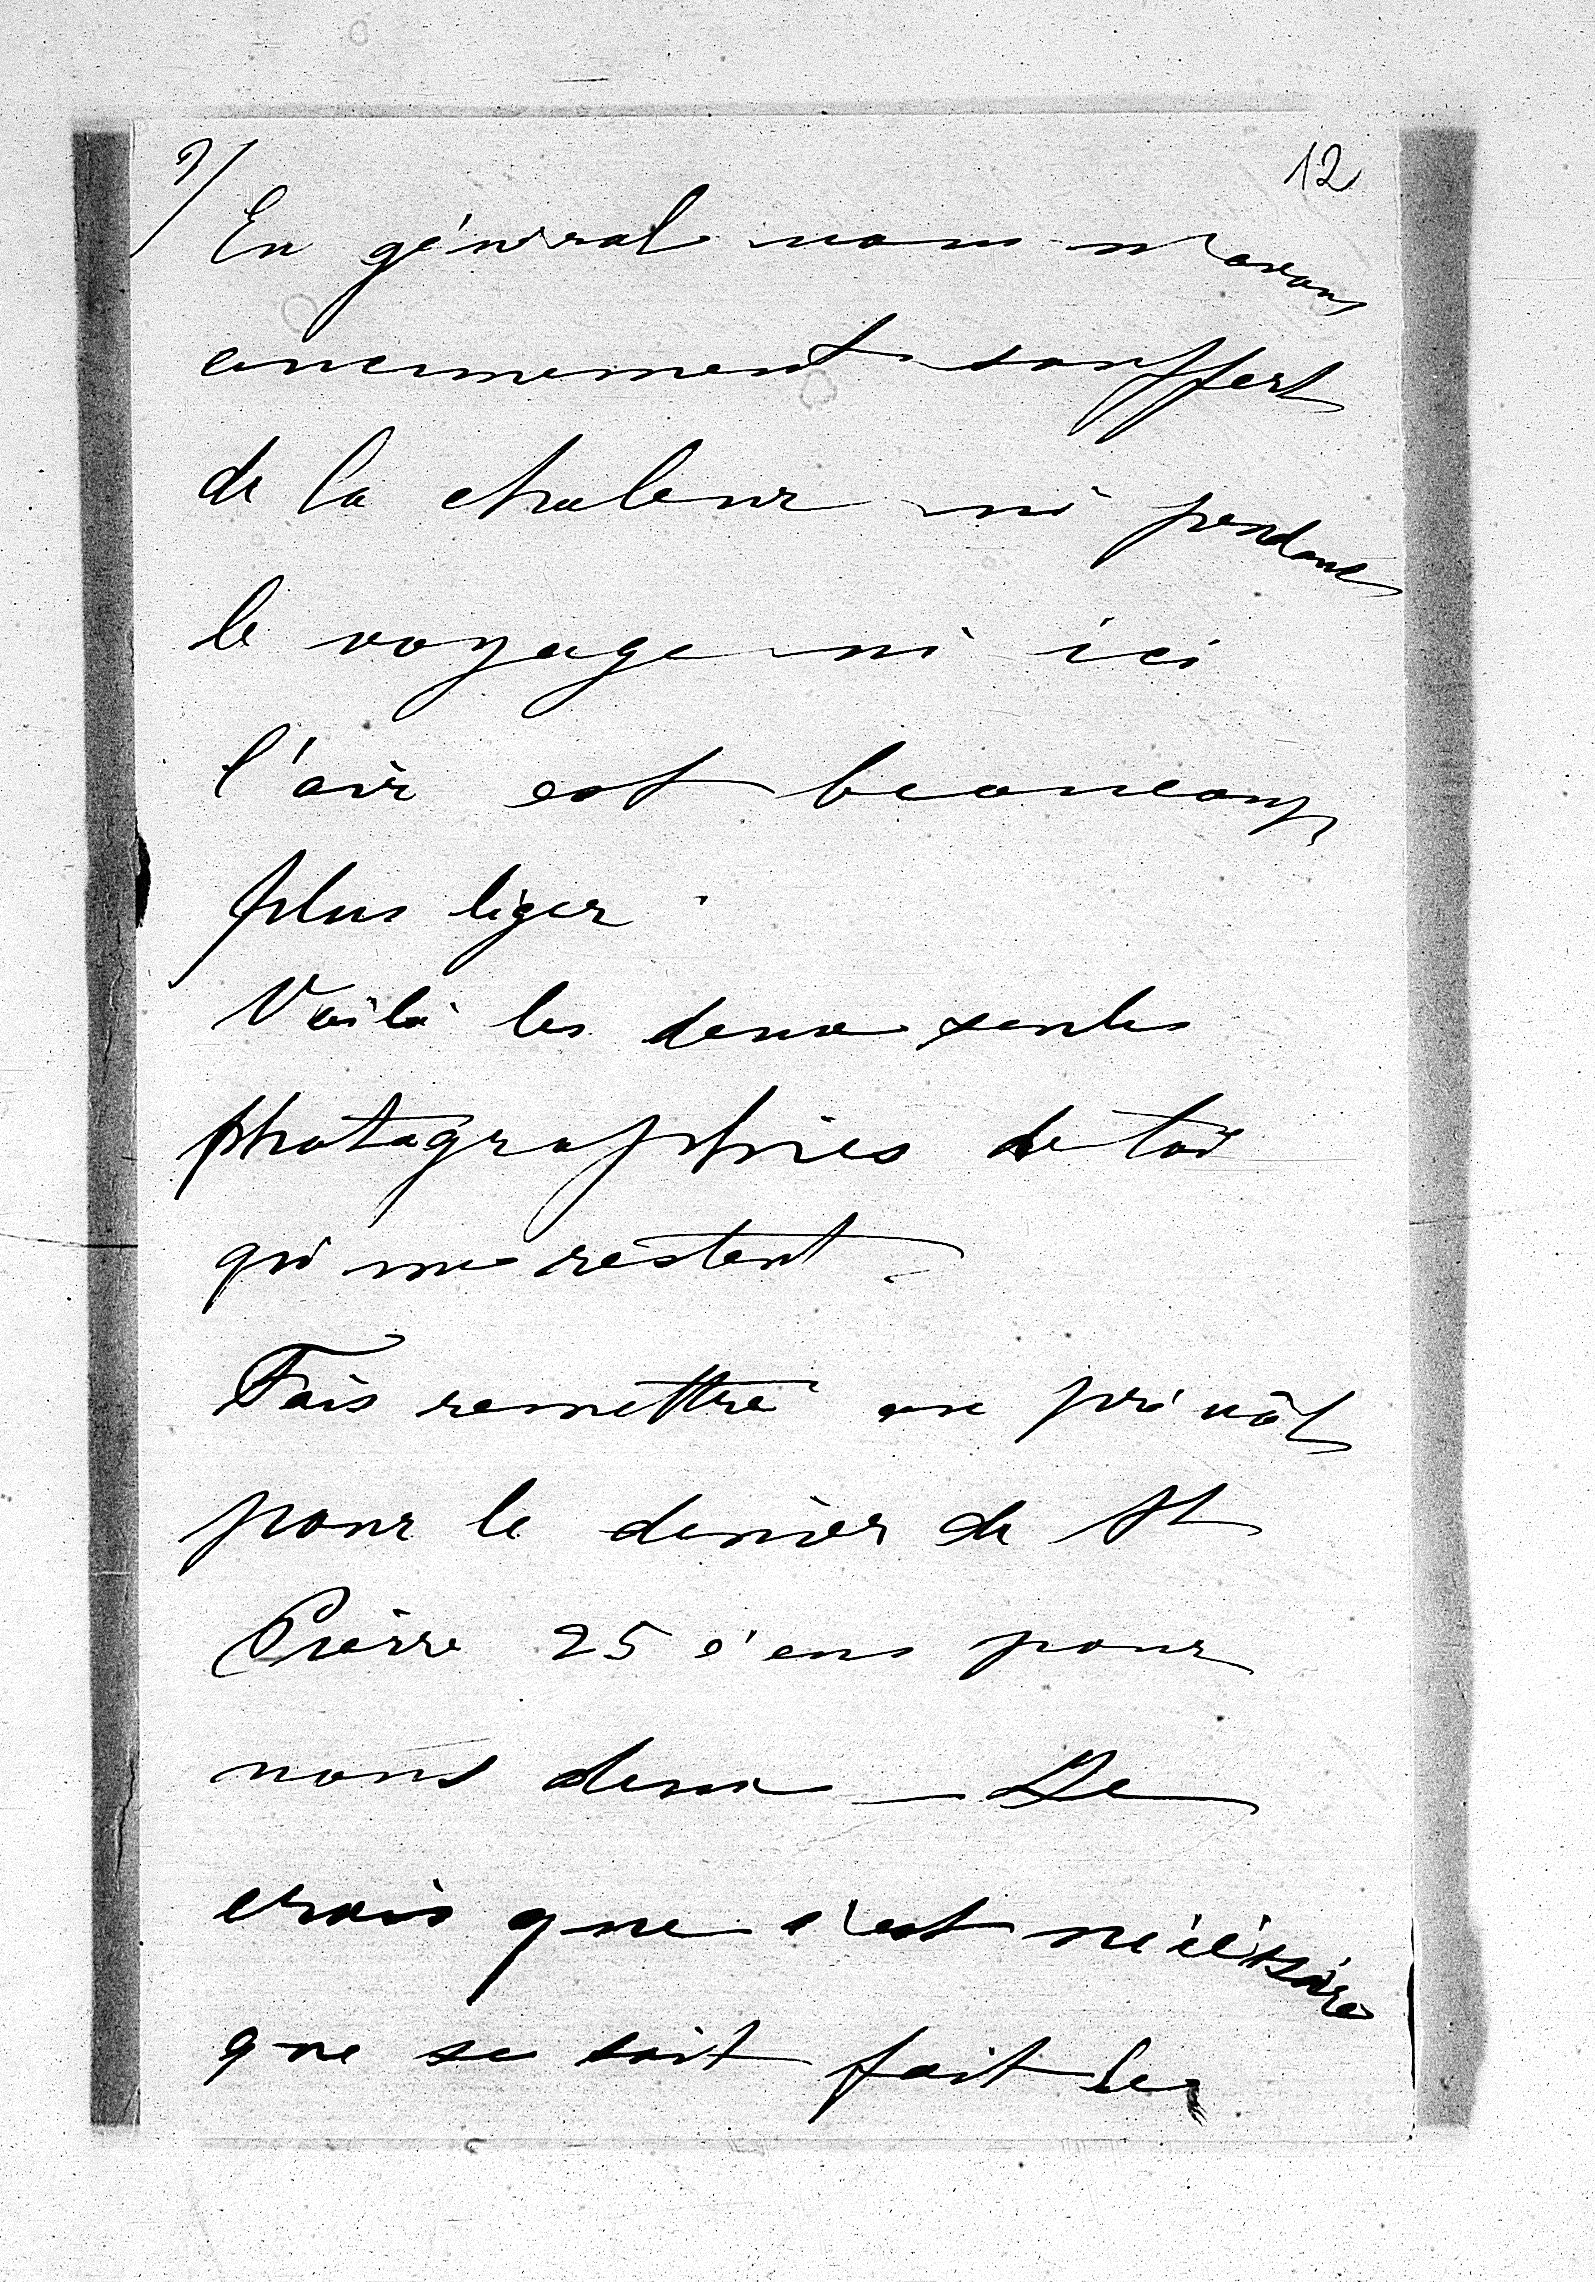 12
En général nous n'avons
aucunement souffert
de la chaleur ni pendant
le voyage ni ici
l'air est beaucoup
plus léger.
Voilà les deux seules
photographies de toi
qui me restent.
Fais remettre au prévôt
pour le denier de St
Pierre 25 écus pour
nous deux — Je
crois que c'est nécéssaire
que se soit fait le